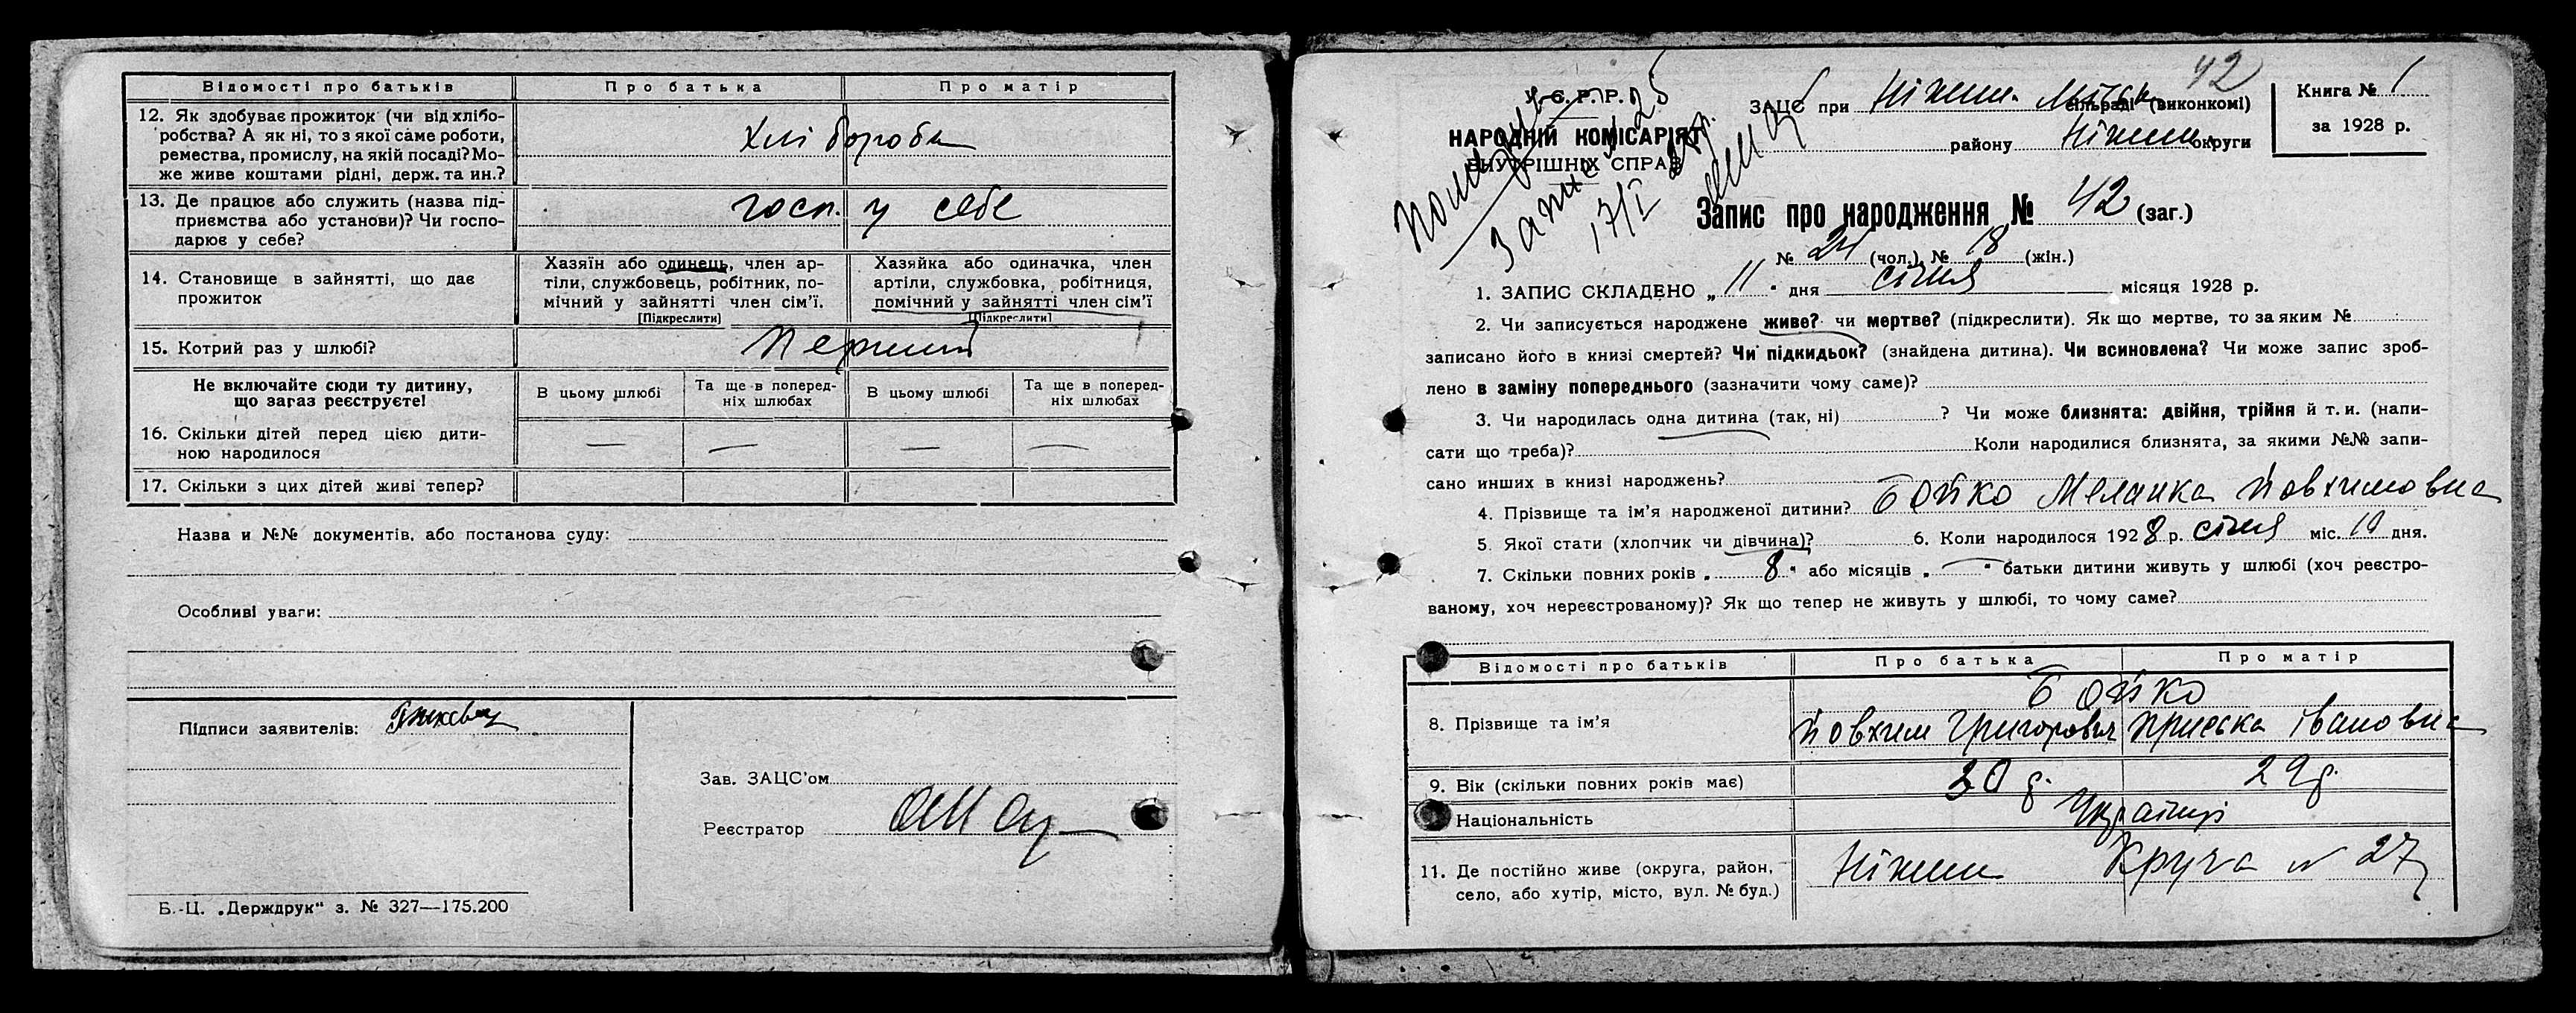 Відомості про батьків Про батька Про матір
12. Як здобуває прожиток (чи від хлібо-
робства? А як ні, то з якої саме роботи,
ремества, промислу, на якій посаді? Мо-
же живе коштами рідні, держ. та ин.?
Хлібороби
13. Де працює або служить (назва під-
приємства або установи)? Чи госпо-
дарює у себе?
госп. у себе
14. Становище в зайнятті, що дає
прожиток
Хазяїн або одинець, член ар-
тіли, службовець, робітник, по-
мічний у зайнятті член сім'ї.
[Підкреслити]
Хазяйка або одиначка, член
артіли, службовка, робітниця,
помічний у зайнятті член сім'ї
[Підкреслити]
15. Котрий раз у шлюбі? Перший
Не включайте сюди ту дитину,
що загаз реєструєте!
В цьому шлюбі
Та ще в поперед-
ніх шлюбах
В цьому шлюбі
Та ще в поперед-
ніх шлюбах
16. Скільки дітей перед цією дити-
ною народилося — — — —
17. Скільки з цих дітей живі тепер?
Назва и №№ документів, або постанова суду:
Особливі уваги:
Підписи заявителів:
Зав. ЗАЦС'ом
Реєстратор
Б.-Ц. „Держдрук" з. № 327—175.200
42
У. С. Р. Р.
НАРОДНІЙ КОМІСАРІЯТ
ВНУТРІШНІХ СПРАВ
17/I
ЗАЦС при Ніжин. сільраді (виконкомі)
району Ніжин. округи
Книга № 1
за 1928 р.
Запис про народження № 42 (заг.)
№ 24 (чол.) № 18 (жін.)
1. ЗАПИС СКЛАДЕНО „ 11 " дня січня місяця 1928 р.
2. Чи записується народжене живе? чи мертве? (підкреслити). Як що мертве, то за яким №
записано його в книзі смертей? Чи підкидьок? (знайдена дитина). Чи всиновлена? Чи може запис зроб-
лено в заміну попереднього (зазначити чому саме)?
3. Чи народилась одна дитина (так, ні) ? Чи може близнята: двійня, трійня й т. и. (напи-
сати що треба)? Коли народилися близнята, за якими №№ запи-
сано инших в книзі народжень?
4. Прізвище та ім'я народженої дитини? Бойко Меланка Йовхимовна
5. Якої стати (хлопчик чи дівчина)? 6. Коли народилося 1928 р. січня міс. 10 дня.
7. Скільки повних років „ 8 " або місяців „ — " батьки дитини живуть у шлюбі (хоч реєстро-
ваному, хоч нереєстрованому)? Як що тепер не живуть у шлюбі, то чому саме?
Відомості про батьків Про батька Про матір
Бойко
8. Прізвище та ім'я Йовхим Григорович Приська Івановна
9. Вік (скільки повних років має) 30 р. 29 р.
Національність Українці
11. Де постійно живе (округа, район,
село, або хутір, місто, вул. № буд.)
Ніжин Круча № 27